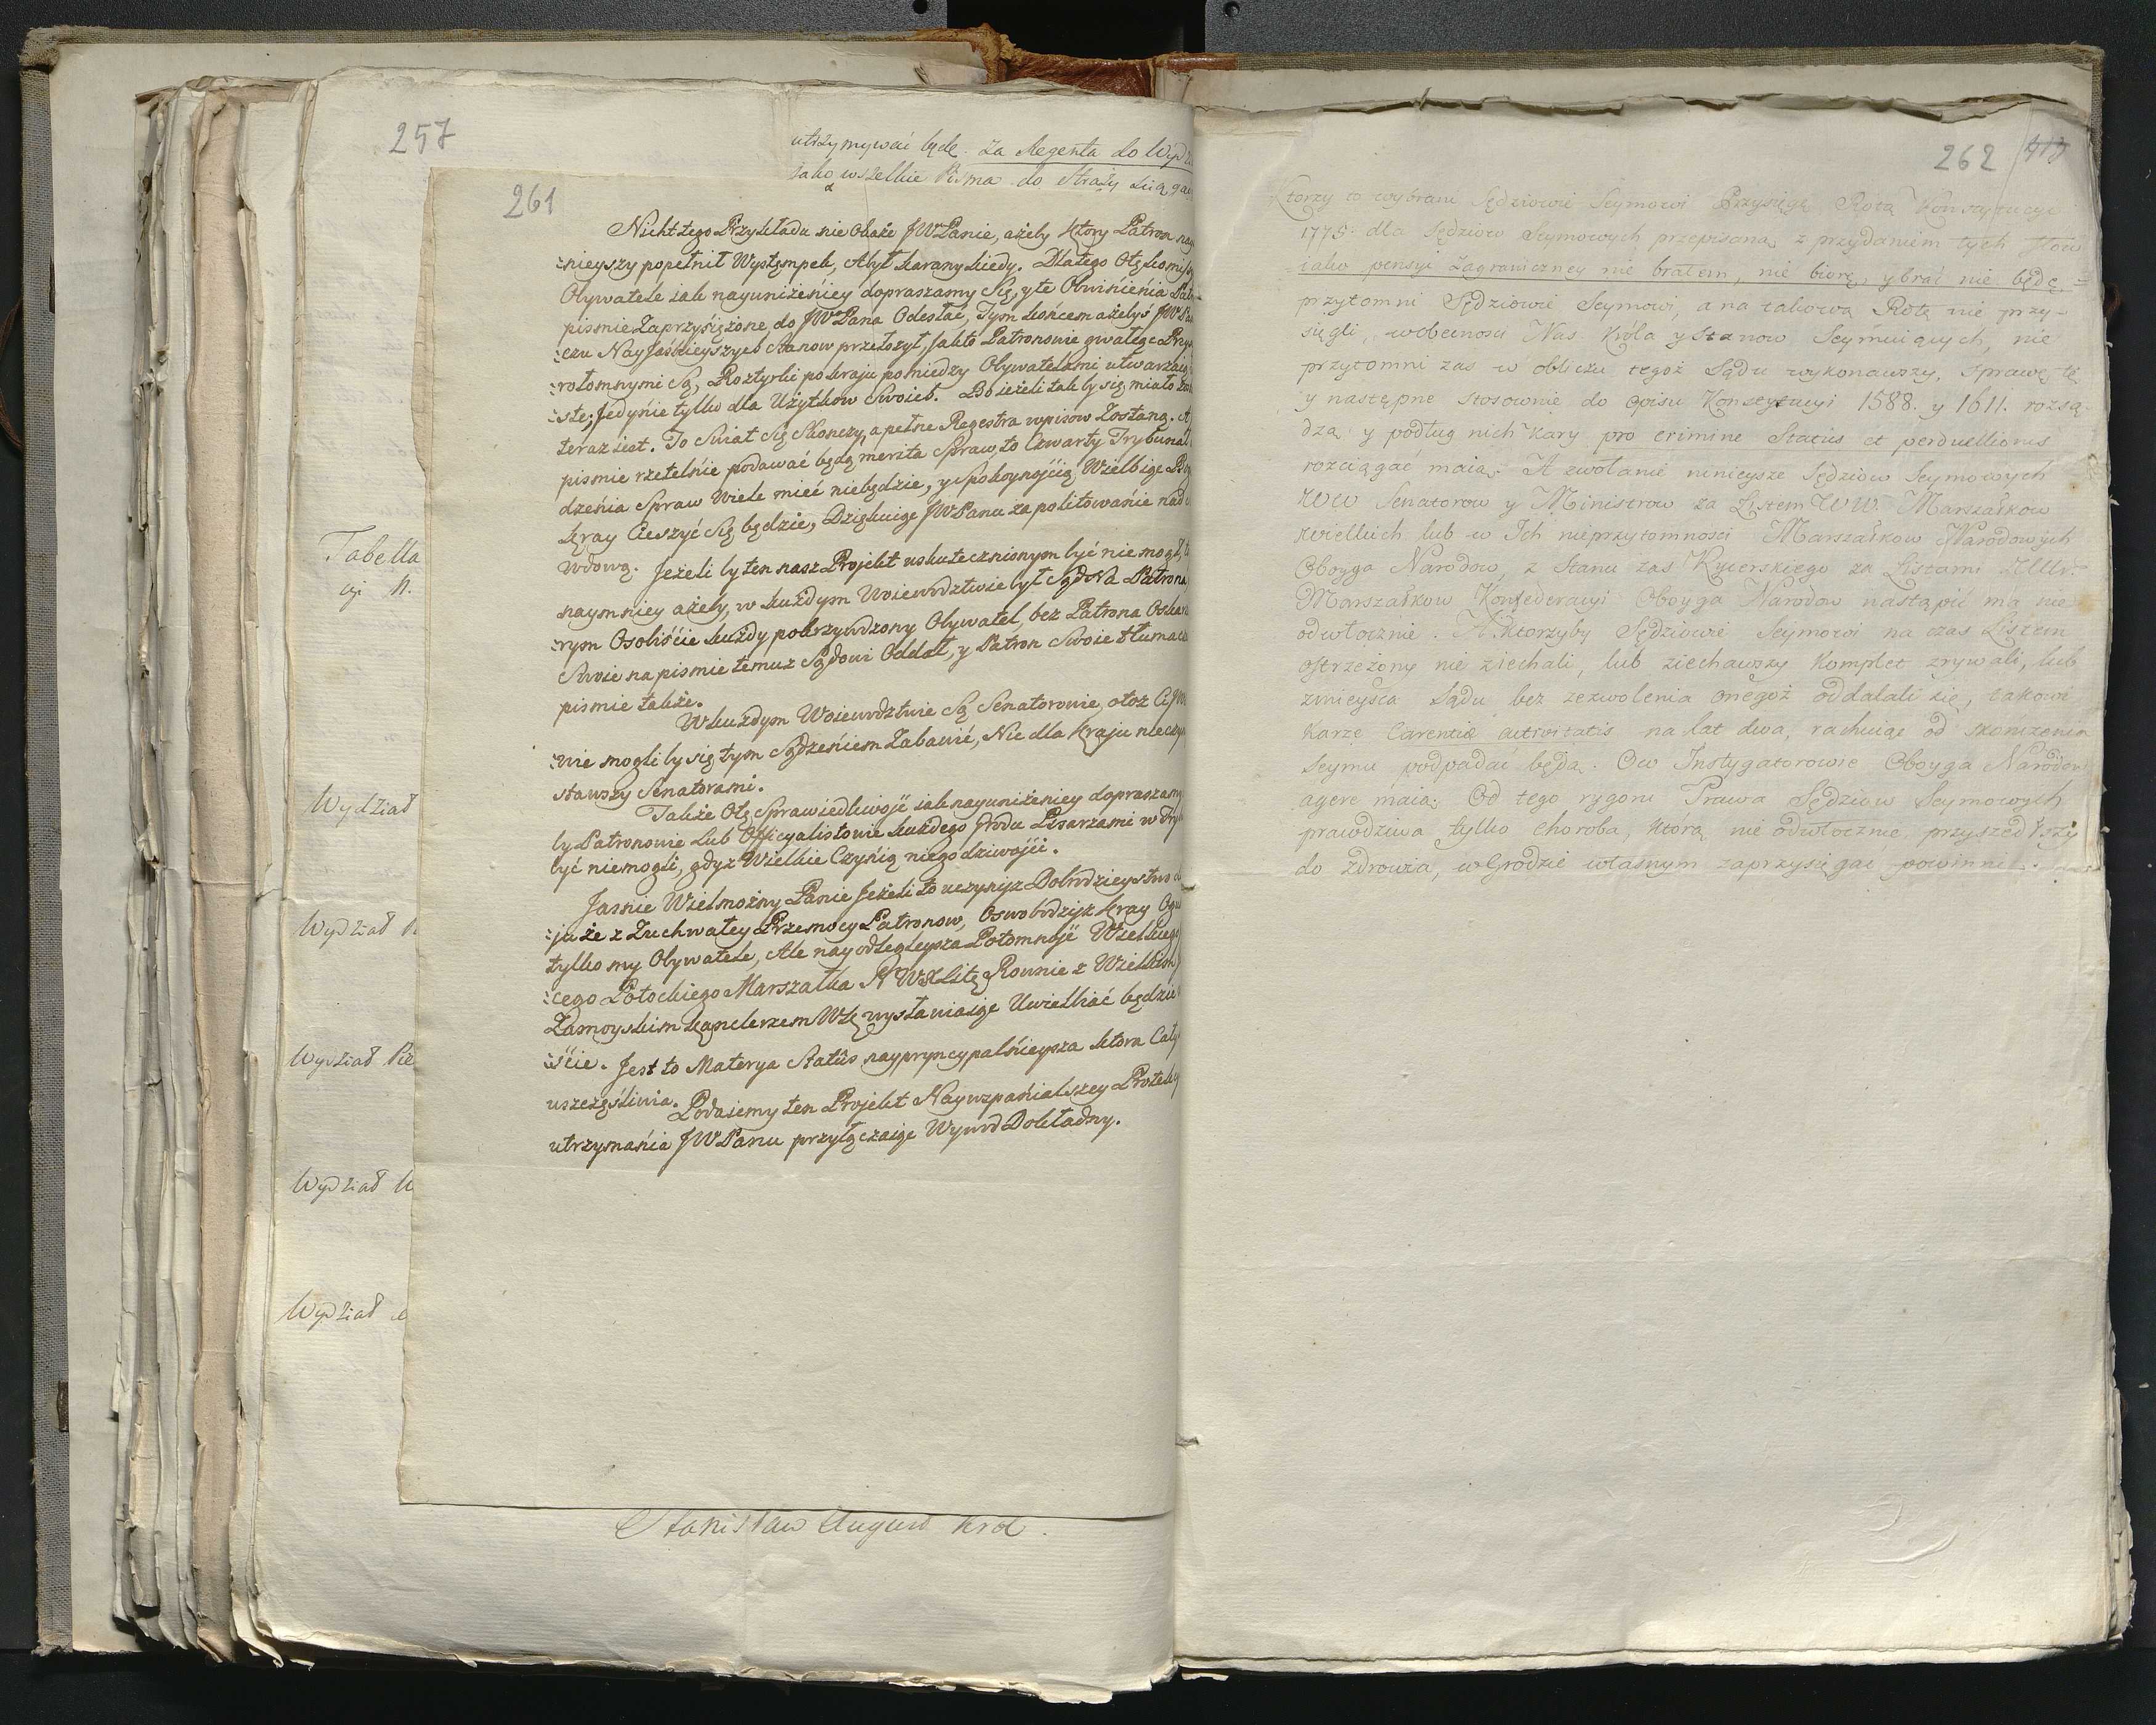 257
utrzymywać będę. za Regenta do Wydz
iako wszelkie Pisma do Straży
Tabella
cji N.
Wydział
Wydział
Wydział Pie
Wydział
Wydział
261
Nicht tego Przykładu nie Okaże JWPanie, ażeby Ktory Patron nay
:nieyszy popełnił Występek, Abył karany kiedy. Dlatego
Obywatele iak nayuniżeńiey dopraszamy Się, y te Obwinieńia
pismie Zaprzysiężone, do JWPana Odesłać, Tym końcem ażebyś JWPa
:czu Nayjaśnieyszych Stanow przełożył, Jak to Patronowie gwałtąc
:rotomnymi Są, Roztyrki po kraju pomiedzy Obywatelami utwarzaią
:ste; Jedynie tylko dla Użytkow Swoich. Bo ieżeli tak by się miało
teraz iest. To Swiat Się Skonczy, a pełne Regestra wpisow Zostaną. A
pismie rzetelnie podawać będą merita Spraw, to Czwarty Trybunał
dzeńia Spraw Wiele mieć niebędzie, y Spokoynośćią Wielbiąc
kray Cieszyć Się będzie, Dziękuiąc JWPanu za politowanie nad
Wdową. Jeżeli by ten nasz Projekt uskutecznionym być nie mogł,
naymniey ażeby, w każdym Woiewodztwie był Sąd Na Patrona
:rym Osobiście każdy pokrzywdzony Obywatel, bez Patrona
Swoie na pismie temuż Sądowi Oddał, y Patron Swoie tłumacz
pismie także.
W każdym Woiewodztwie Są Senatorowie, otoż Ci
:wie mogli by się tym Sądzeńiem Zabawić, Nic dla Kraju nie
stawszy Senatorami.
Także O tę Sprawiedliwość iak nayuniżeniey dopraszamy
by Patronowie Lub Officyalistowie każdego Grodu Pisarzami w
być niemogli, gdyż Wielkie Czynią niegodziwośći.
Jasnie Wielmożny Panie Jeżeli to uczynisz Dobrodzieystwo
:ju że z Zuchwałey Przemocy Patronow, Oswobodzisz kray
tylko my Obywatele, Ale nayodlegleysza Potomność Wielkiego
:cego Potockiego Marszałka N WXLitę Rownie z Wielkim
Zamoyskim Kanclerzem WK wysławiaiąc Uwielbiać będzie
:śćie. Jest to Materya Status naypryncypalnieysza ktora Cały
uszczęśliwia.
Podaiemy ten Projekt Naywzpańialszey
utrzymańia JWPanu przyłączaiąc Wywod Dokładny.
Stanisław August Krol.
262
Ktorzy to wybrani Sędziowie Seymowi Przysięgę Rotą Konstytucyi
1775. dla Sędziow Seymowych przepisaną z przydaniem tych słow
iako pensyi Zagraniczney nie brałem, nie biorę, y brać nie będę,
przytomni Sędziowie Seymowi, a na takową Rotę nie przy-
sięgli, wobecności Nas Króla y Stanow Seymuiących, nie
przytomni zas w obliczu tegoż Sądu wykonawszy, Sprawę tę
y następne stosownie do opisu Konstytucyi 1588. y 1611. rozsą-
dzą y podług nich kary pro crimine Status et perduellionis
rozciągać maią. A zwołanie ninieysze Sędziow Seymowych
WW Senatorow y Ministrow za Listem WW. Marszałkow
wielkich lub w Ich nieprzytomności Marszałkow Narodowych
Oboyga Narodow, z Stanu zas Rycerskiego za Listami
Marszałkow Konfederacyi Oboyga Narodow nastąpić ma nie-
odwłocznie. A ktorzyby Sędziowie Seymowi na czas Listem
ostrzeżony nie ziechali, lub ziechawszy Komplet zrywali, lub
zmieysca Sądu bez zezwolenia onegoż oddalali się, takowi
karze Carentiæ activitatis na lat dwa, rachuiąc od skończenia
Seymu podpadać będą. Ow Instygatorowie Oboyga Narodow
agere maią. Od tego rygoru Prawa Sędziow Seymowych
prawdziwa tylko choroba, którą nie odwłocznie przyszedłszy
do zdrowia, w Grodzie własnym zaprzysięgać powinni.